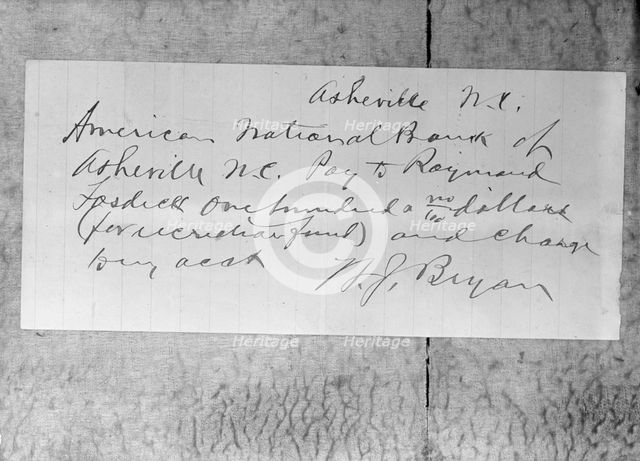 Asheville N.C.
American National Bank of
Asheville N.C. Pay to Raymond
Fosdick One hundred & no/100 dollars
(for recreation fund) and charge
to my acct W. J. Bryan
Heritage
Heritage
Heritage
Heritage
Heritage
Heritage